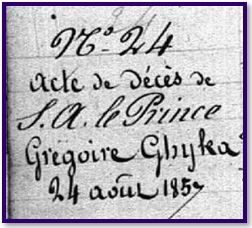 Nº 24
Acte de décès de
S. A. le Prince
Grégoire Ghyka
24 août 1857